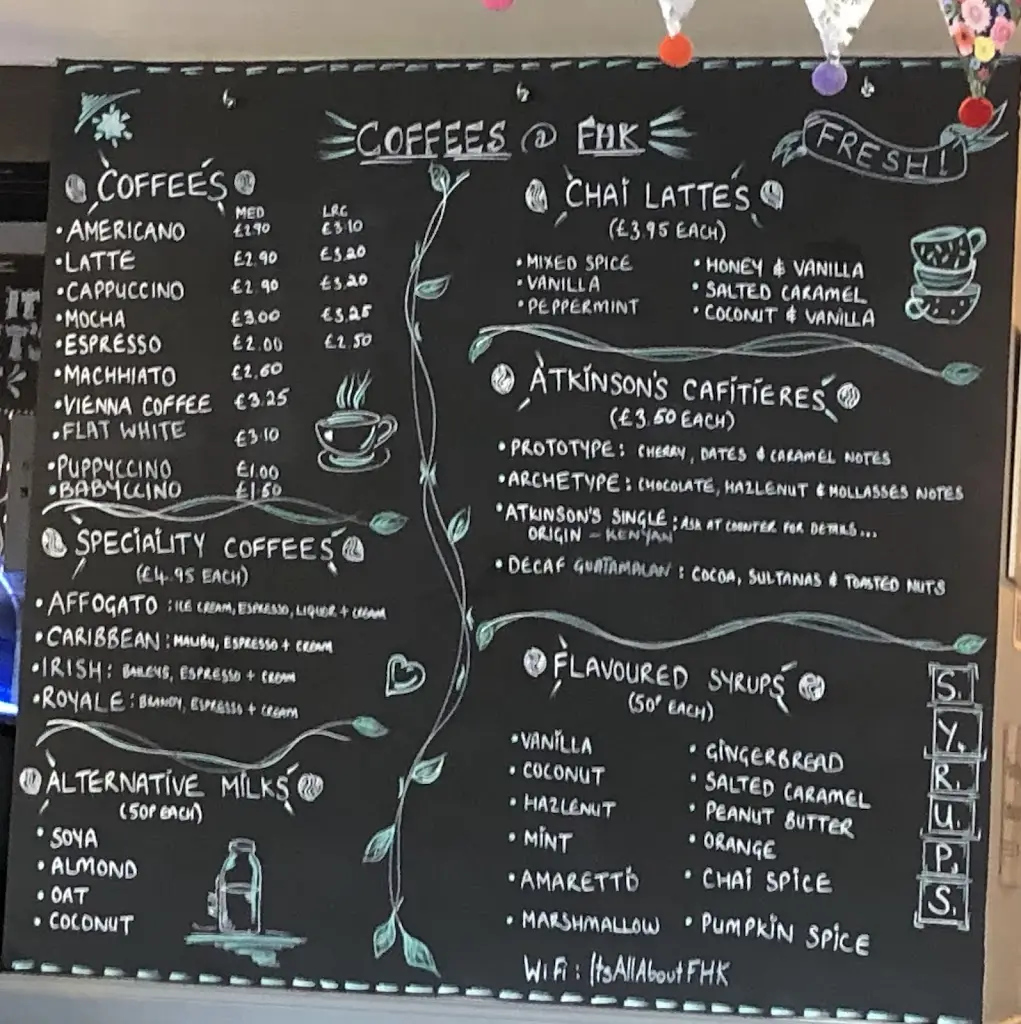 COFFEES @ FHK
FRESH!
COFFEES
MED LRG
• AMERICANO £2.90 £3.10
• LATTE £2.90 £3.20
• CAPPUCCINO £2.90 £3.20
• MOCHA £3.00 £3.25
• ESPRESSO £2.00 £2.50
• MACHHIATO £2.60
• VIENNA COFFEE £3.25
• FLAT WHITE £3.10
• PUPPYCCINO £1.00
• BABYCCINO £1.50
SPECIALITY COFFEES
(£4.95 EACH)
• AFFOGATO : ICE CREAM, ESPRESSO, LIQUOR + CREAM
• CARIBBEAN : MALIBU, ESPRESSO + CREAM
• IRISH : BAILEYS, ESPRESSO + CREAM
• ROYALE : BRANDY, ESPRESSO + CREAM
ALTERNATIVE MILKS
(50P EACH)
• SOYA
• ALMOND
• OAT
• COCONUT
CHAI LATTES
(£3.95 EACH)
• MIXED SPICE • HONEY & VANILLA
• VANILLA • SALTED CARAMEL
• PEPPERMINT • COCONUT & VANILLA
ATKINSON'S CAFITIERES
(£3.50 EACH)
• PROTOTYPE : CHERRY, DATES & CARAMEL NOTES
• ARCHETYPE : CHOCOLATE, HAZLENUT & MOLLASSES NOTES
• ATKINSON'S SINGLE : ASK AT COUNTER FOR DETAILS...
ORIGIN - KENYAN
• DECAF GUATAMALAN : COCOA, SULTANAS & TOASTED NUTS
FLAVOURED SYRUPS
(50P EACH)
• VANILLA • GINGERBREAD
• COCONUT • SALTED CARAMEL
• HAZLENUT • PEANUT BUTTER
• MINT • ORANGE
• AMARETTO • CHAI SPICE
• MARSHMALLOW • PUMPKIN SPICE
S.
Y.
R.
U.
P.
S.
WiFi : ItsAllAboutFHK